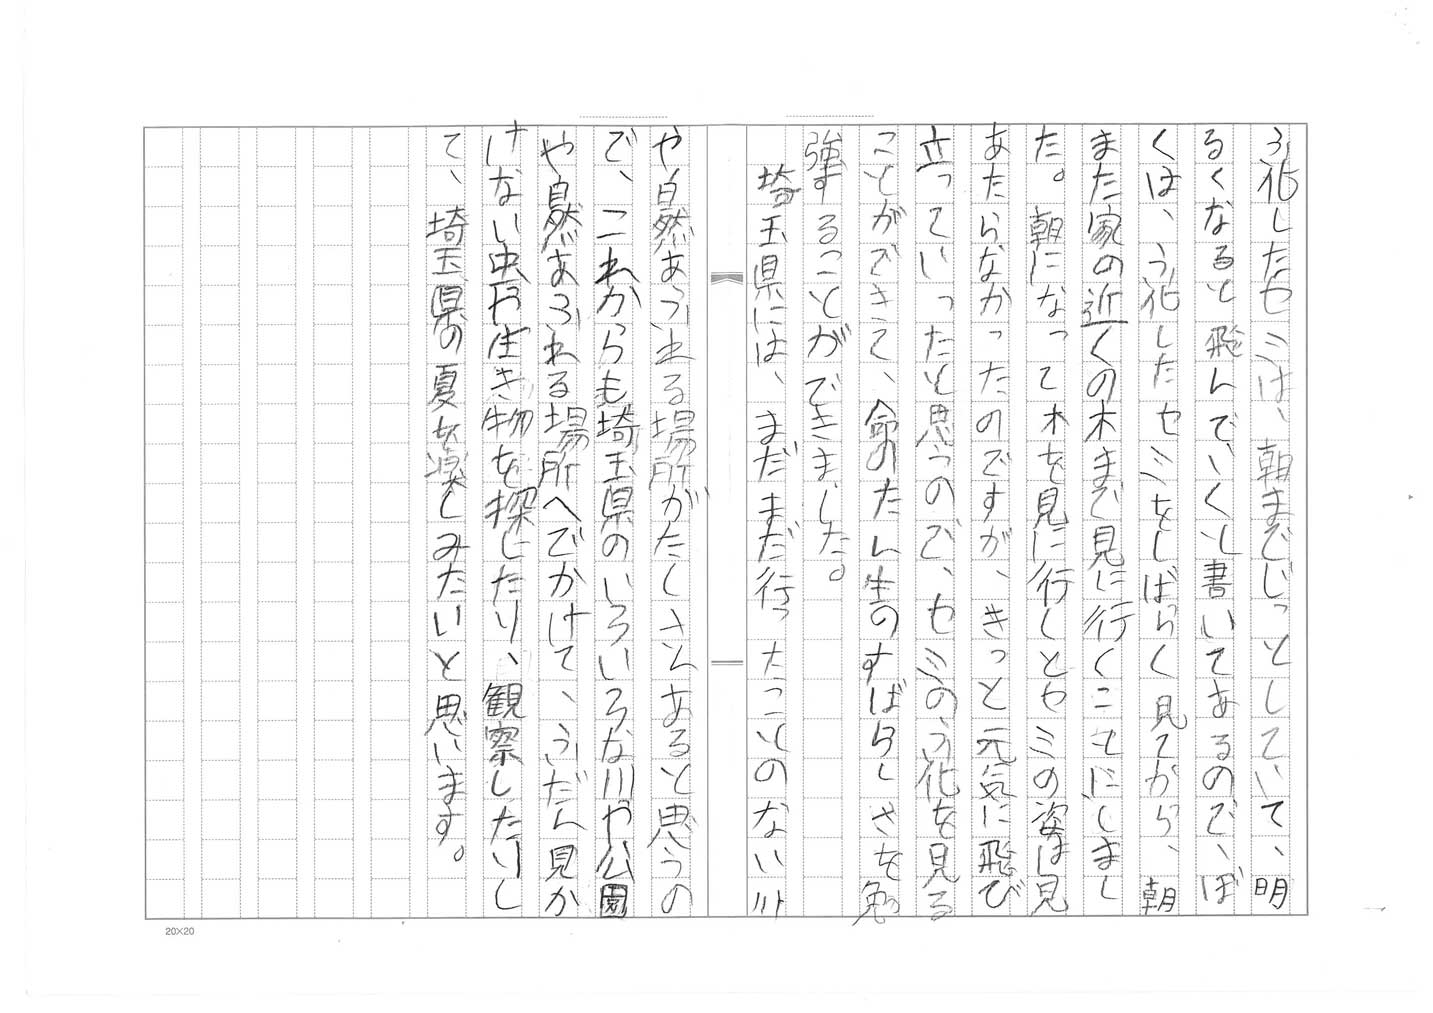 う化したセミは、朝までじっとしていて、明
るくなると飛んでいくと書いてあるので、ぼ
くは、う化したセミをしばらく見てから、朝
また家の近くの木まで見に行くことにしまし
た。朝になって木を見に行くとセミの姿は見
あたらなかったのですが、きっと元気に飛び
立っていったと思うので、セミのう化を見る
ことができて、命のたん生のすばらしさを勉
強することができました。
埼玉県には、まだまだ行ったことのない川
や自然あふれる場所がたくさんあると思うの
で、これからも埼玉県のいろいろな川や公園
や自然あふれる場所へでかけて、ふだん見か
けない虫や生き物を探したり、観察したりし
て、埼玉県の夏を楽しみたいと思います。
20×20